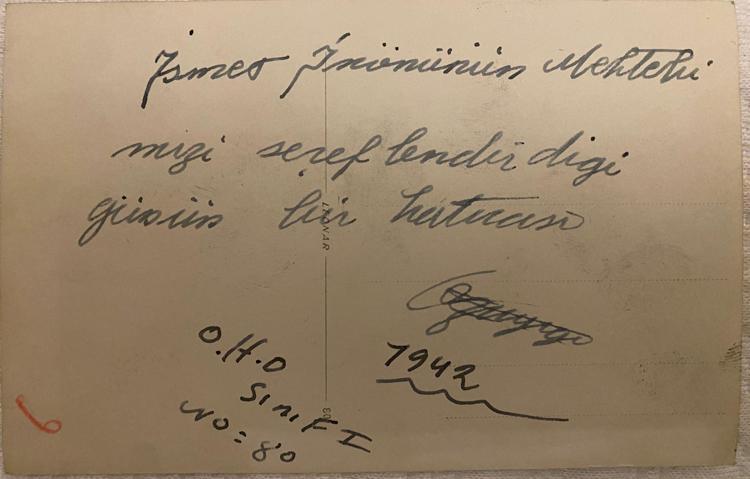 İsmet İnönünün Mektebi
mizi şereflendirdigi
günün bir hatırası
1942
O.H.O
SINIF I
NO: 80
LEONAR